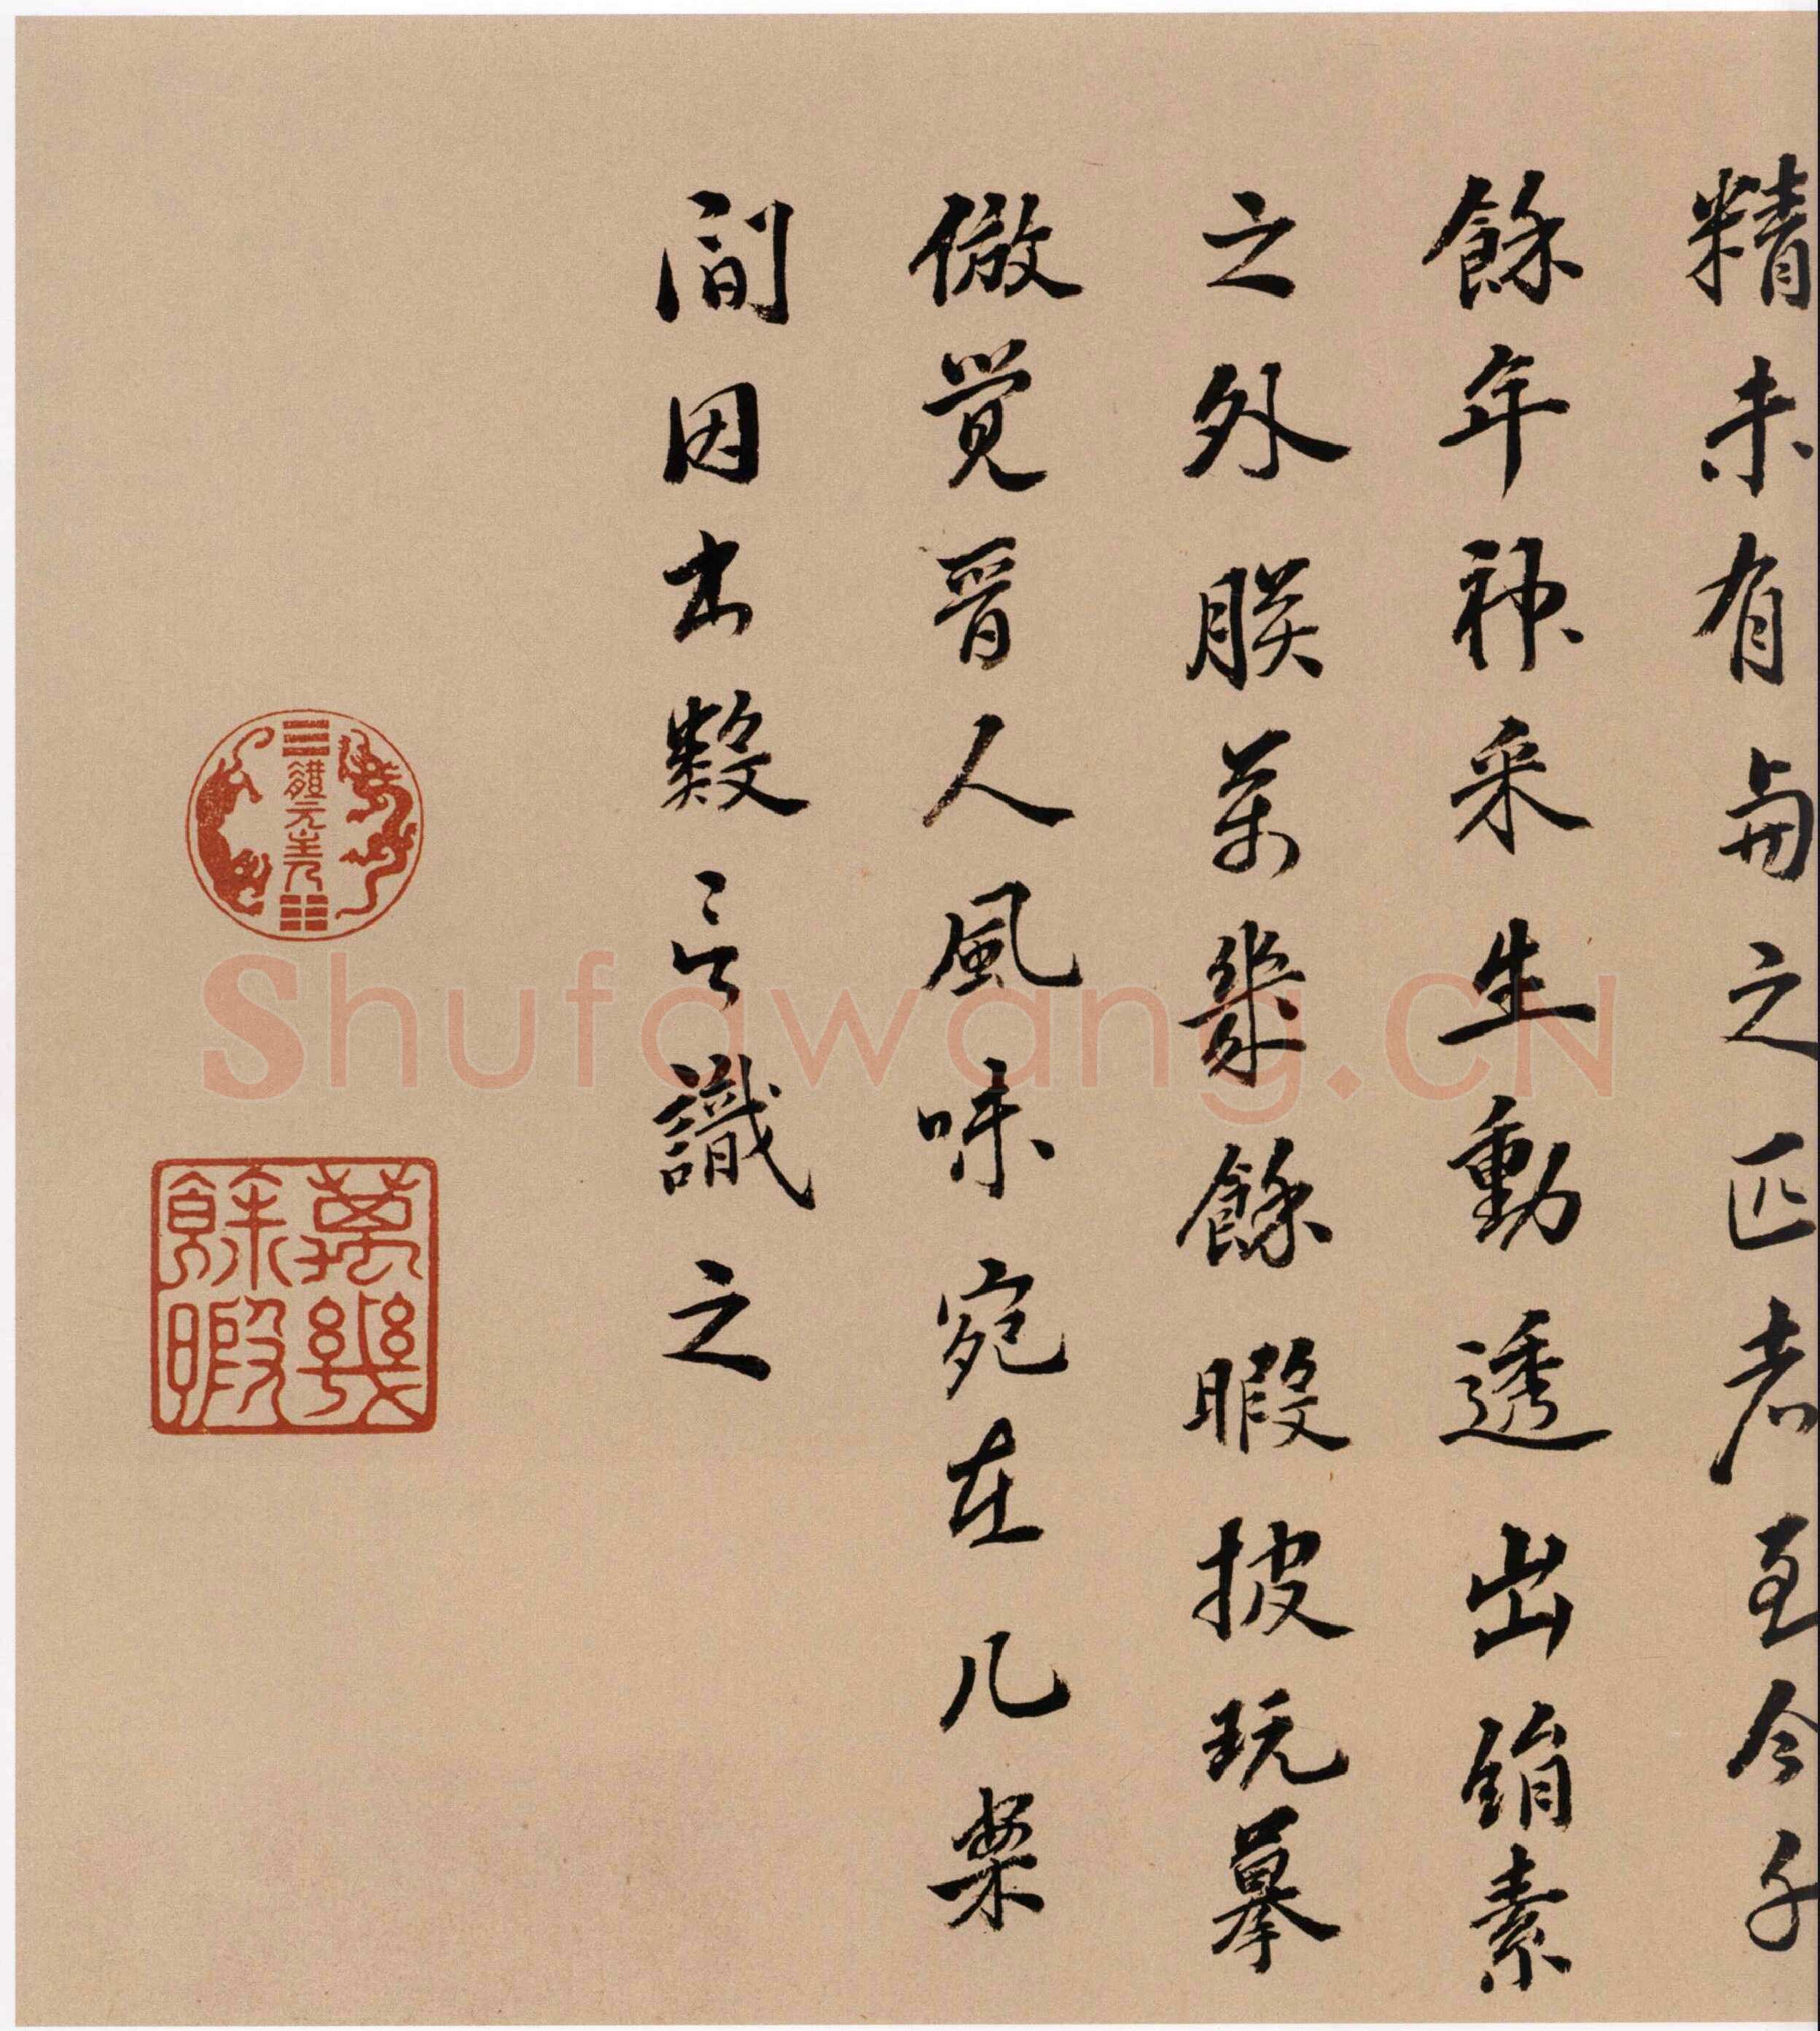 精未有與之匹者至今千
餘年神采生動透出絹素
之外朕萬幾餘暇披玩摹
倣覺晉人風味宛在几案
間因書數言識之
體元主人
萬幾餘暇
Shufawang.CN